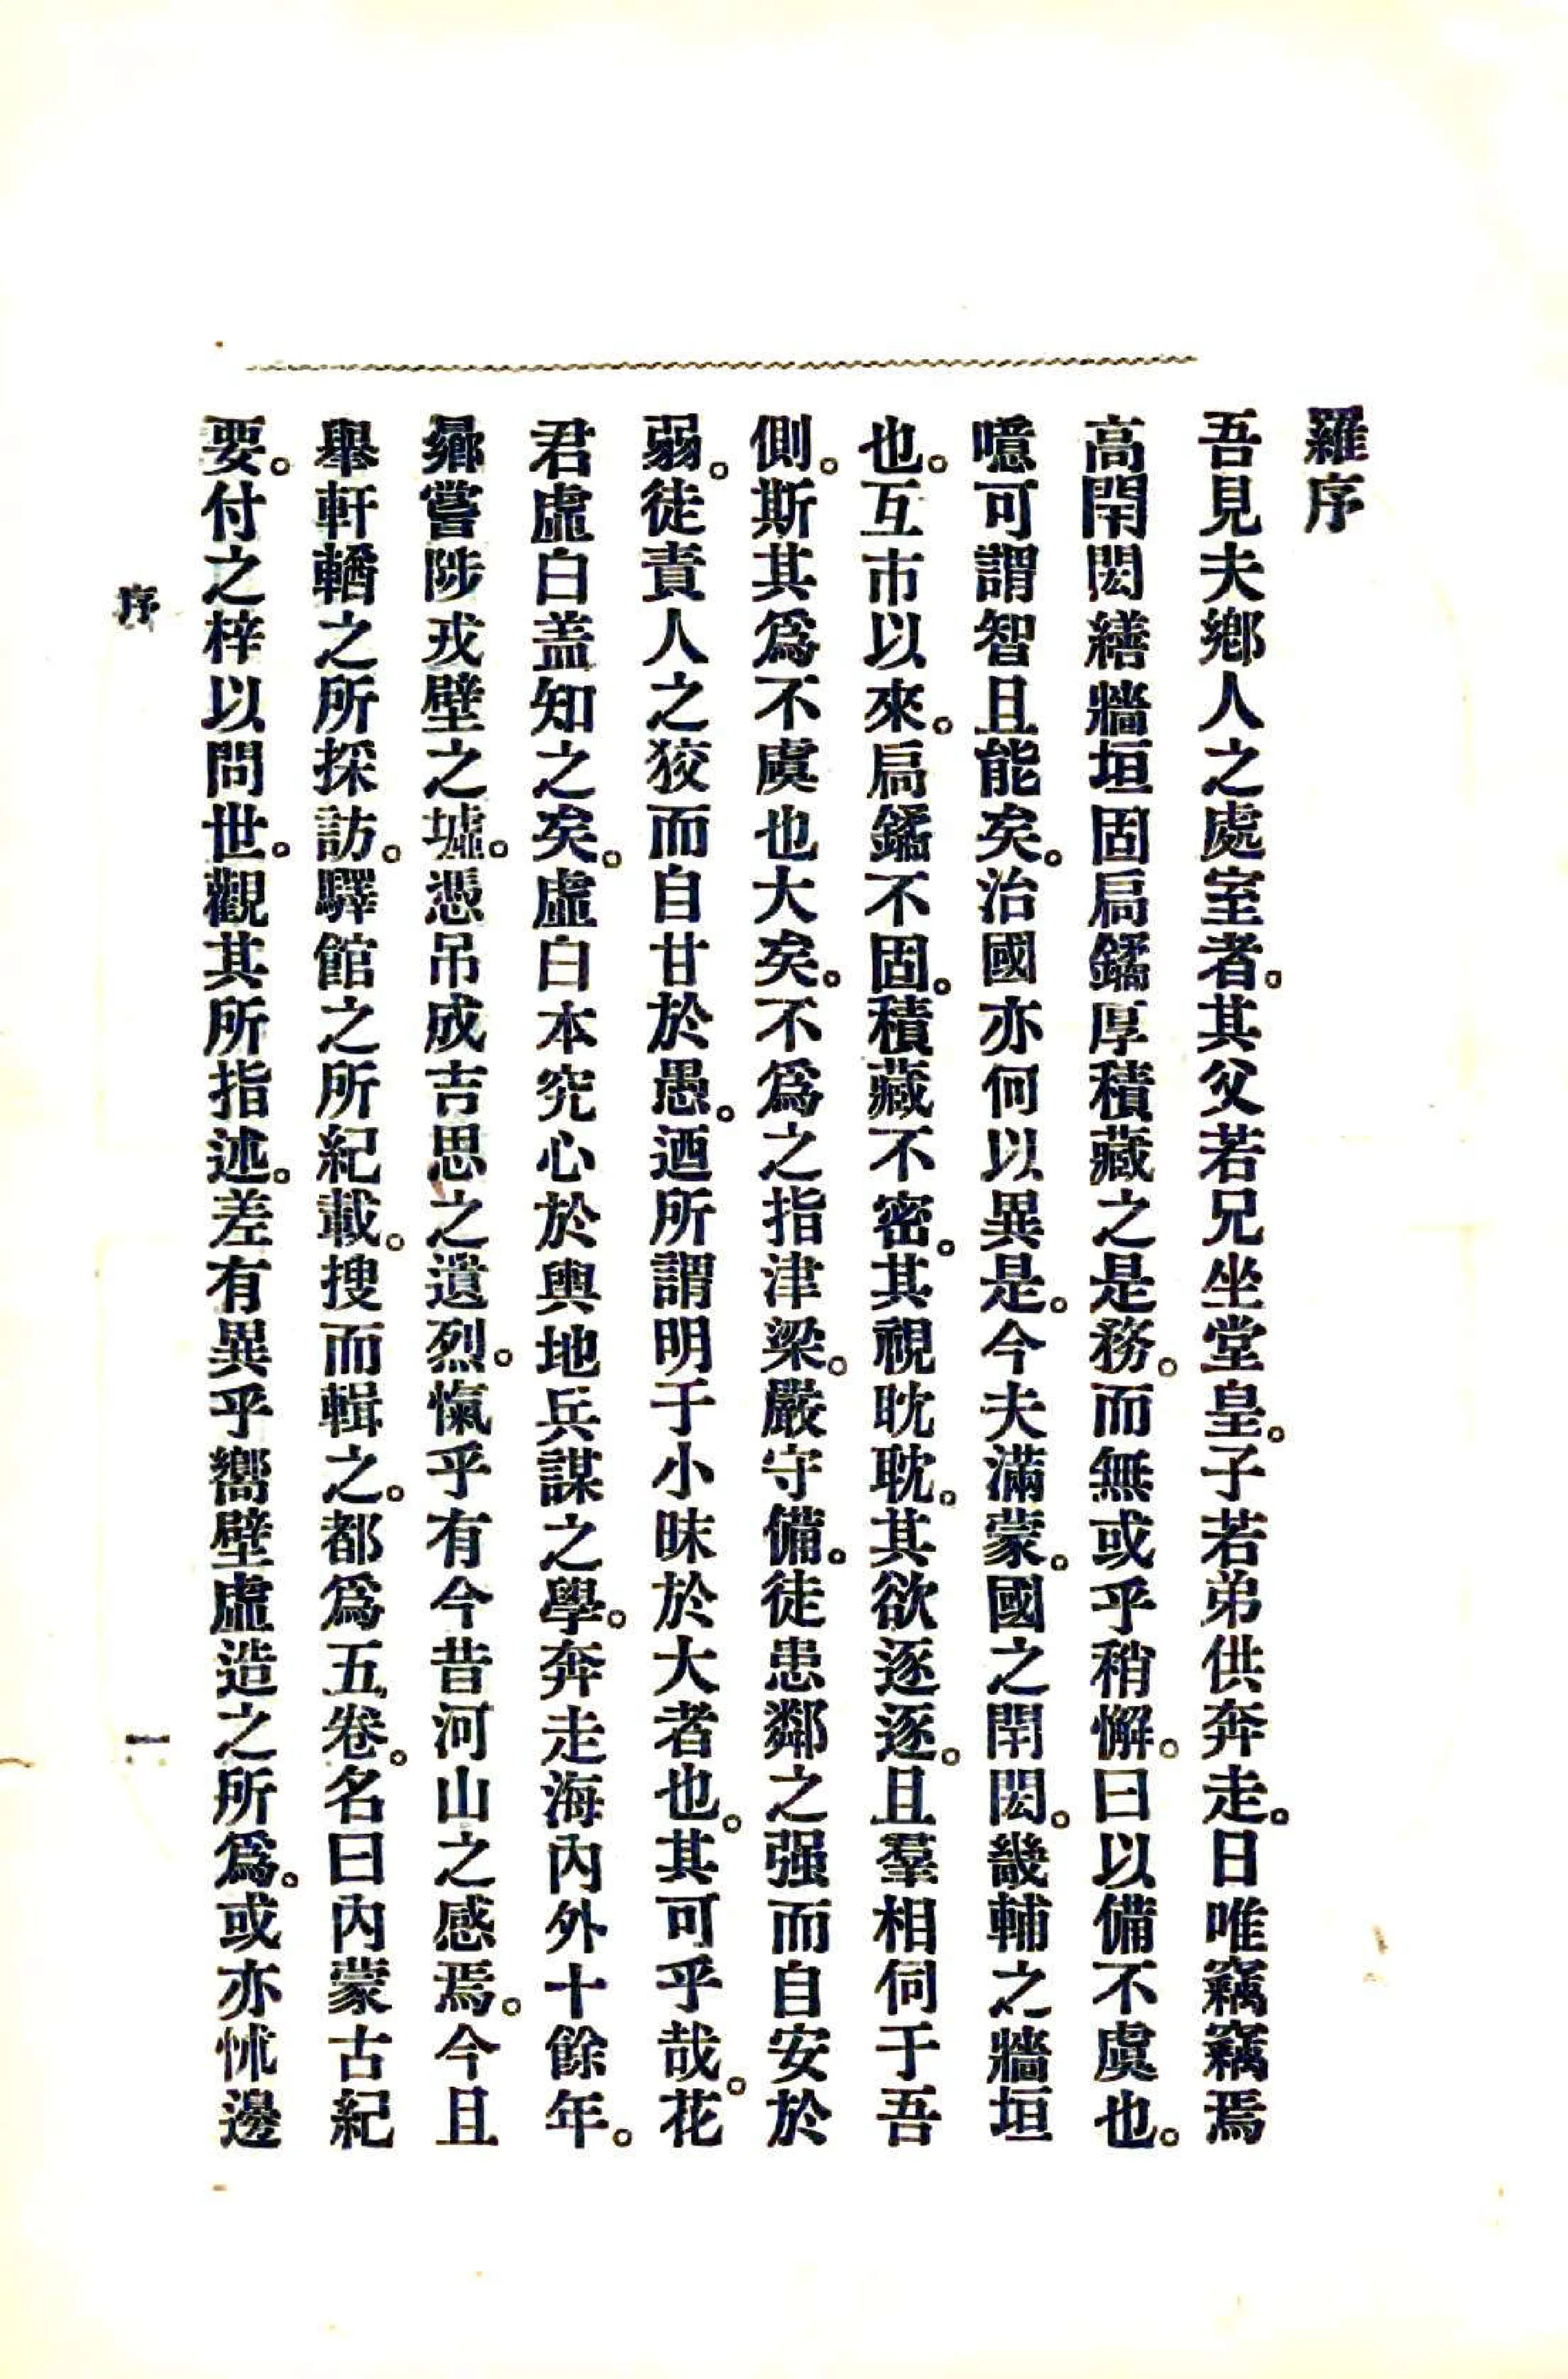 羅序
吾見夫鄕人之處室者。其父若兄坐堂皇。子若弟供奔走。日唯竊竊焉
高閈閎繕牆垣固扃鐍厚積藏之是務。而無或乎稍懈。曰以備不虞也。
噫可謂智且能矣。治國亦何以異是。今夫滿蒙。國之閈閎。畿輔之牆垣
也。互市以來。扃鐍不固。積藏不密。其視眈眈。其欲逐逐。且羣相伺于吾
側。斯其爲不虞也大矣。不爲之指津梁。嚴守備。徒患鄰之强而自安於
弱。徒責人之狡而自甘於愚。迺所謂明于小昧於大者也。其可乎哉。花
君虛白盖知之矣。虛白本究心於輿地兵謀之學。奔走海內外十餘年。
曏嘗陟戎壁之墟。憑吊成吉思之遺烈。愾乎有今昔河山之感焉。今且
舉軒輶之所採訪。驛館之所紀載。搜而輯之。都爲五卷。名曰內蒙古紀
要。付之梓以問世。觀其所指述。差有異乎嚮壁虛造之所爲。或亦怵邊
序
一